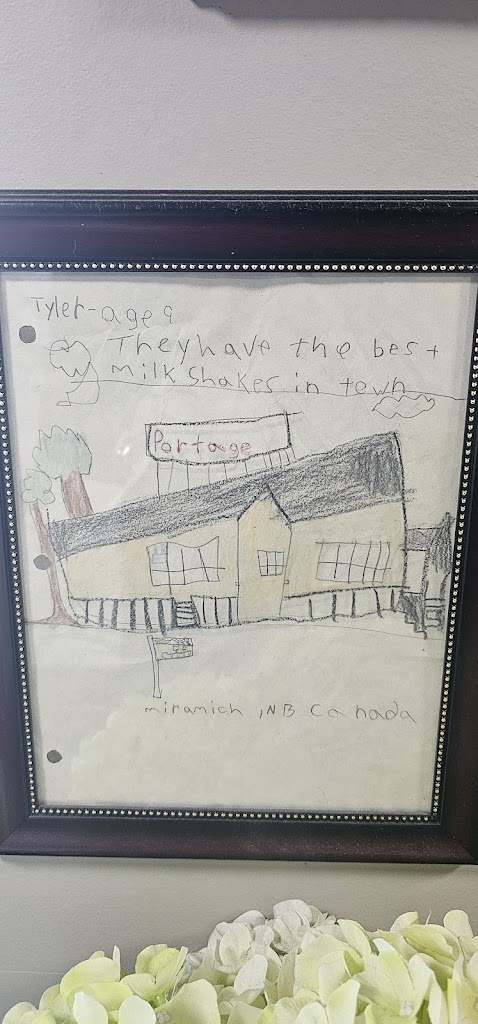 Tyler-age 9
They have the best
milk shakes in town
Portage
miramich ,NB Canada